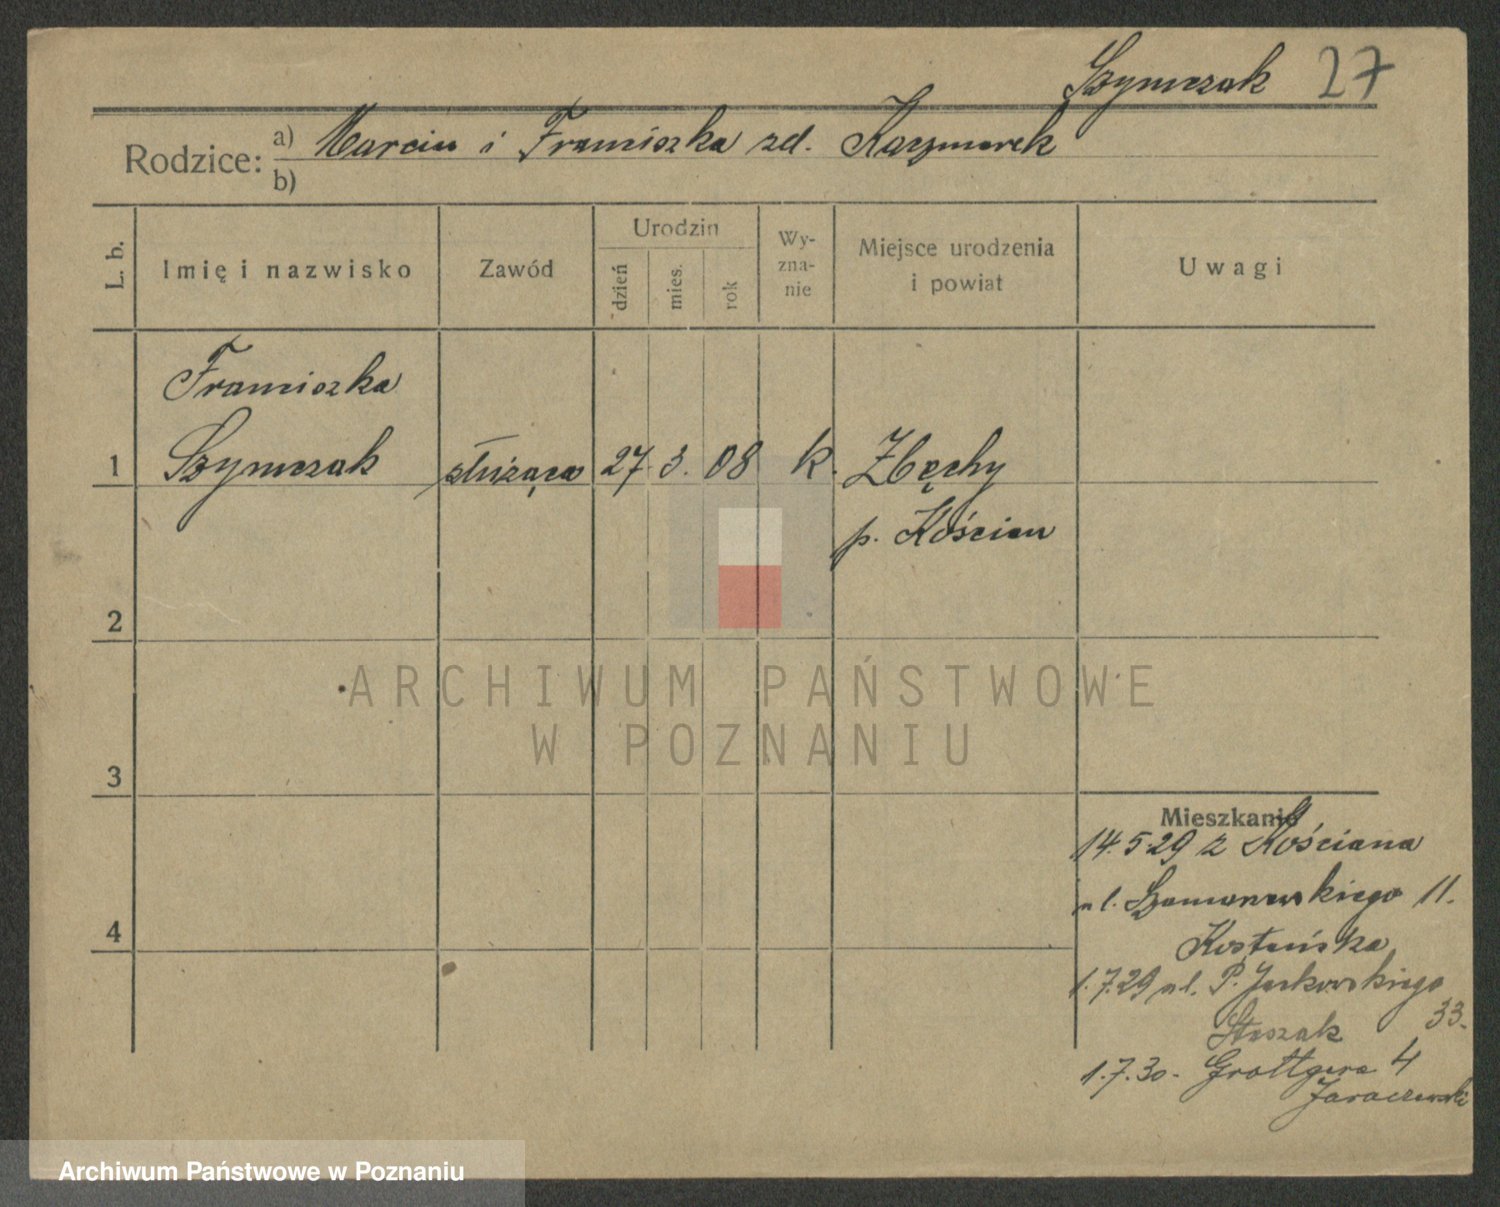 Szymczak 27
Rodzice: a) Marcin i Franciszka zd. Kaczmarek
b)
L. b.
Imię i nazwisko
Zawód
Urodzin
dzień
mies.
rok
Wy-
zna-
nie
Miejsce urodzenia
i powiat
Uwagi
Franciszka
1 Szymczak służąca 27. 3. 08 k. Zbęchy
p. Kościan
2
3
4
ARCHIWUM PAŃSTWOWE
W POZNANIU
Mieszkanie
14.5.29 z Kościana
ul. Szamarzewskiego 11.
1.7.29 ul. P. Jackowskiego
33.
Staszak
1.7.30. Grottgera 4
Jaraczewski
Archiwum Państwowe w Poznaniu